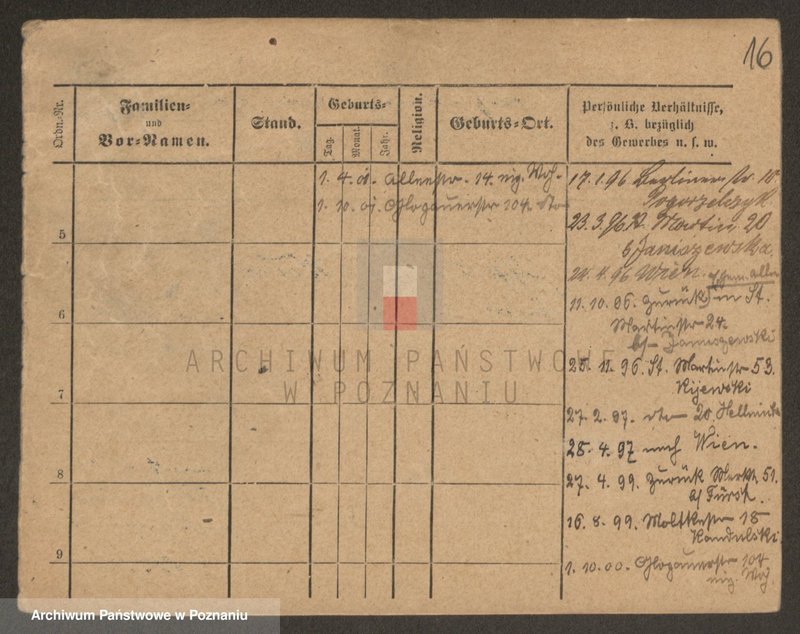 16
Ordn.-Nr.
Familien-
und
Vor-Namen.
Stand.
Geburts-
Tag.
Monat.
Jahr.
Religion.
Geburts-Ort.
Persönliche Verhältnisse,
z. B. bezüglich
des Gewerbes u. s. w.
1. 4. 01. Alleestr. 14. eig. Woh.
1. 10. 01. Glogauerstr 104. dto
17.1.96 Berlinerstr. 10
23.3.96 St. Martin 20
b/ Januszewska
24.4.96 Wien.
11. 10. 96. zurück in St.
Martinstr 24.
b/ Januszewski
25. 11. 96. St. Martinstr 53.
Kijewski
27. 2. 97. dto 20
28. 4. 97 nach Wien.
27. 4. 99. zurück Markt 51.
b/ Fürst.
16. 8. 99. Moltkestr 18
Kandulski
1. 10. 00. Glogauerstr 104
eig. Wo.
5
6
7
8
9
ARCHIWUM PAŃSTWOWE
W POZNANIU
Archiwum Państwowe w Poznaniu